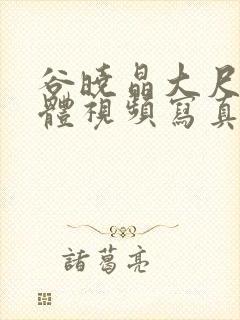 谷曉晶大尺
體視頻寫真
諸葛亮